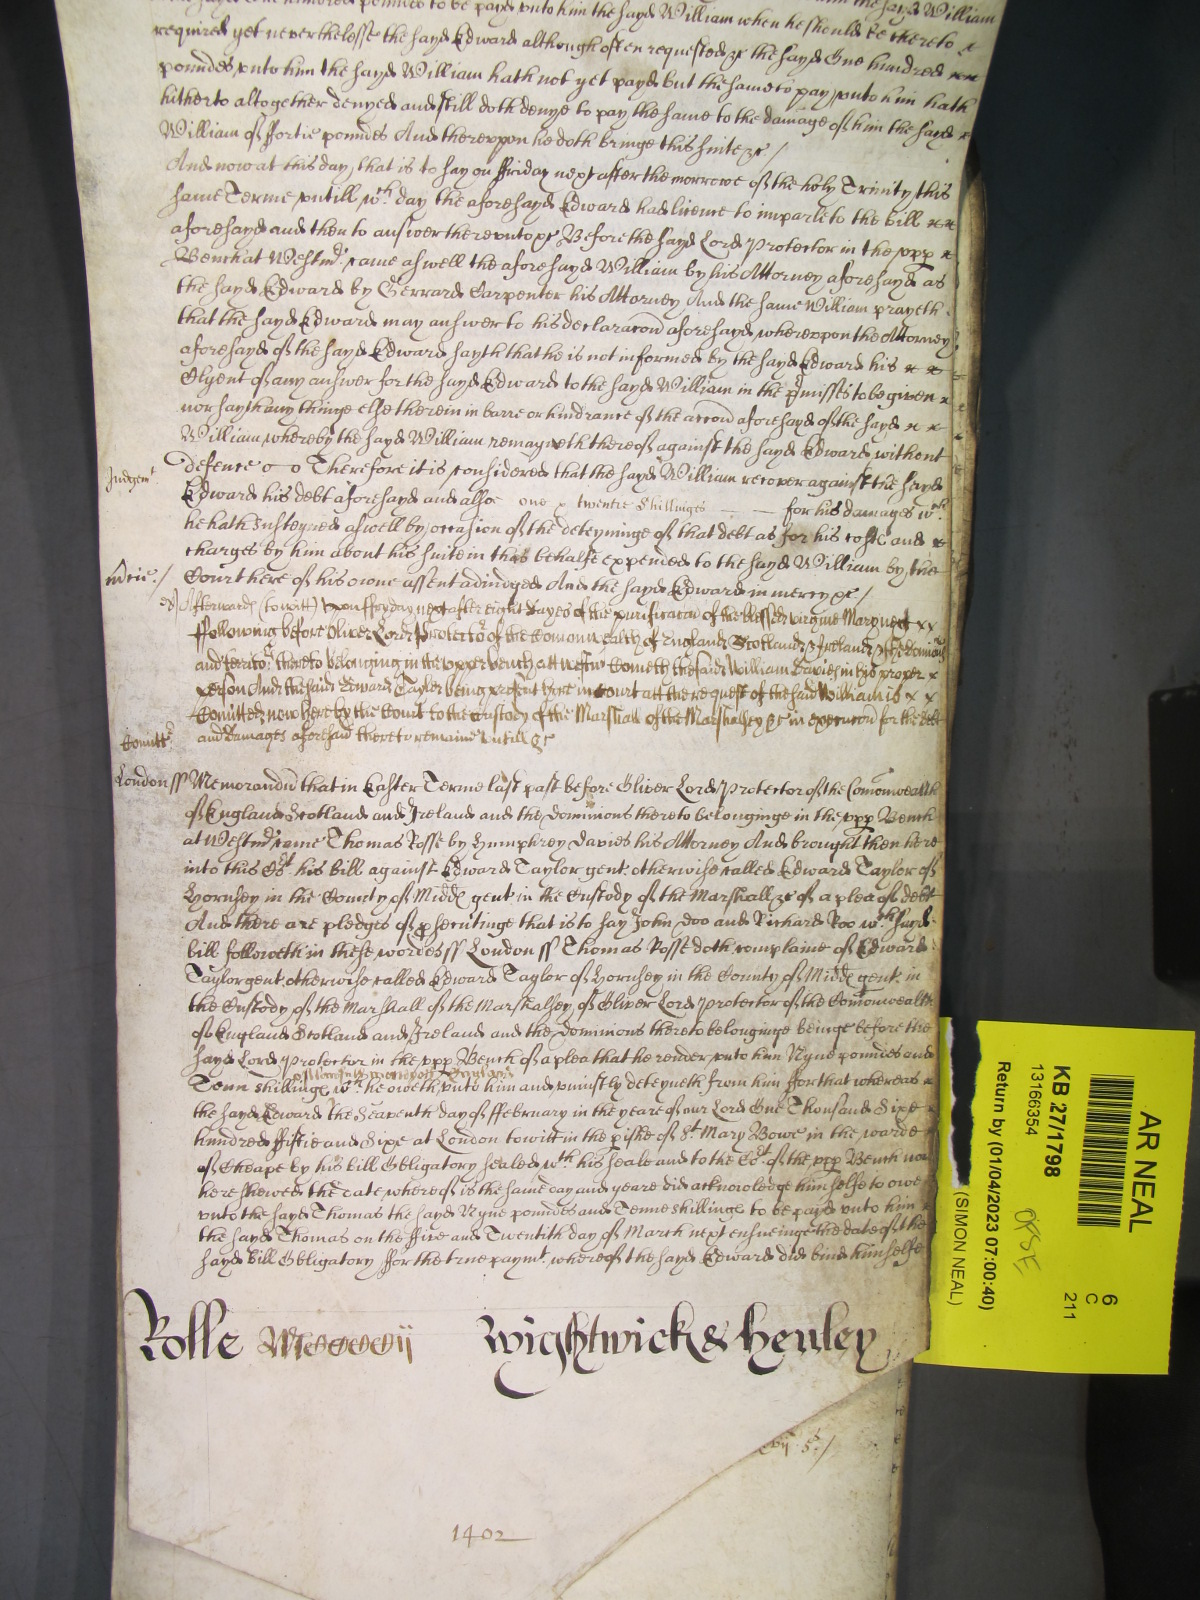 the sayd William
One hundred poundes to be payd unto him the sayd William when he should be thereto
required yet neverthelesse the sayd Edward although often requested &c the sayd One hundred
poundes unto him the sayd William hath not yet payd but the same to pay unto him hath
hitherto altogether denyed and still doth denye to pay the same to the damage of him the sayd
William of ffortie poundes And thereuppon he doth bringe this suite &c /
And now at this day that is to say on ffriday next after the morrowe of the holy Trinity this
same Terme untill wch day the aforesayd Edward had licence to imparle to the bill
aforesayd and then to answer thereunto &c Before the sayd Lord Protector in the upp
Bench at Westmr came aswell the aforesayd William by his Attorney aforesayd as
the sayd Edward by Gerrard Carpenter his Attorney And the same William prayeth
that the sayd Edward may answer to his declaracon aforesayd whereuppon the Attorney
aforesayd of the sayd Edward sayth that he is not informed by the sayd Edward his
Clyent of any answer for the sayd Edward to the sayd William in the pmisses to be given
nor sayth any thinge else therein in barre or hindrance of the accon aforesayd of the sayd
William whereby the sayd William remayneth thereof against the sayd Edward without
Judgemt defence o—o Therefore it is considered that the sayd William recover against the sayd
Edward his debt aforesayd and alsoe one & twentie Shillings — for his damages wch
he hath susteyned aswell by occasion of the deteyninge of that debt as for his costs and
charges by him about his suite in this behalfe expended to the sayd William by the
mercie / Court here of his owne assent adiudged And the sayd Edward in mercy &c /
Afterwards (to witt) upon ffryday next after eight dayes of the purificacon of the blessed virgine Mary next
ffollowing before Oliver Lord Protector of the Comonwealth of England Scotland & Ireland & the dominions
and territor thereto belonging in the upper bench att Westmr Cometh the said William Davies in his proper
person And the said Edward Taylor being present here in Court att the request of the said William is
Comitted now here by the Court to the custody of the Marshall of the Marshalsey &c in execucon for the debt
Comittr and Damages aforesaid there to remaine untill &c
London ss Memorandu that in Easter Terme last past before Oliver Lord Protector of the Comonwealth
of England Scotland and Ireland and the dominions thereto belonginge in the upp Bench
at Westmr came Thomas Rosse by Humphrey Davies his Attorney And brought then here
into this Cort his bill against Edward Taylor gent otherwise called Edward Taylor of
Hornsey in the County of Midd gent in the Custody of the Marshall &c of a plea of debt
And there are pledges of psecutinge that is to say John Doo and Richard Roo wch sayd
bill followeth in these wordes ss London ss Thomas Rosse doth complaine of Edward
Taylor gent otherwise called Edward Taylor of Hornsey in the County of Midd gent in
the Custody of the Marshall of the Marshalsey of Oliver Lord Protector of the Comonwealth
of England Scotland and Ireland and the dominions thereto belonginge beinge before the
sayd Lord Protector in the upp Bench of a plea that he render unto him Nyne poundes and
of lawfull money of England
Tenn shillings wch he oweth unto him and uniustly deteyneth from him ffor that whereas
the sayd Edward the Seaventh day of ffebruary in the yeare of our Lord One Thousand Sixe
hundred fiftie and Sixe at London to witt in the pishe of St Mary Bowe in the warde
of Cheape by his bill Obligatory sealed wth his seale and to the Cort of the upp Bench now
here shewed the date whereof is the same day and yeare did acknowledge himselfe to owe
unto the sayd Thomas the sayd Nyne poundes and Tenne shillings to be payd unto him
the sayd Thomas on the ffive and Twentith day of March next ensueinge the date of the
sayd bill Obligatory ffor the true paymt whereof the sayd Edward did bind himselfe
Rolle Wightwick & Henley
1402
AR NEAL
KB 27/1798
13166354
Return by (01/04/2023 07:00:40)
(SIMON NEAL)
6
C
211